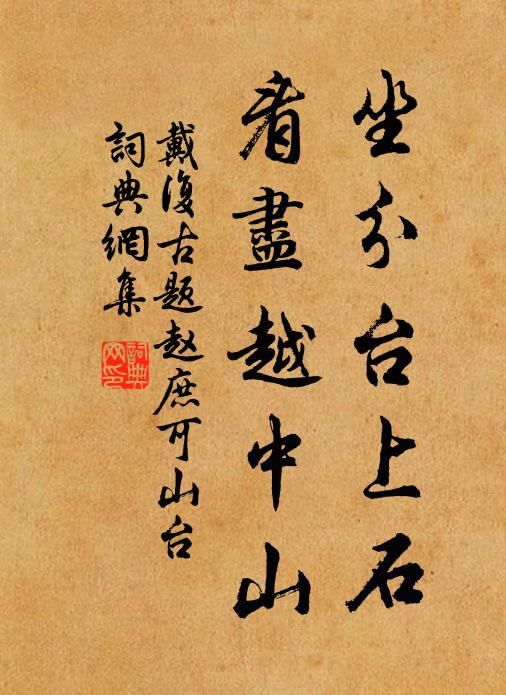 坐分台上石
看盡越中山
戴復古題赵庶可山台
詞典網集
詞典網印